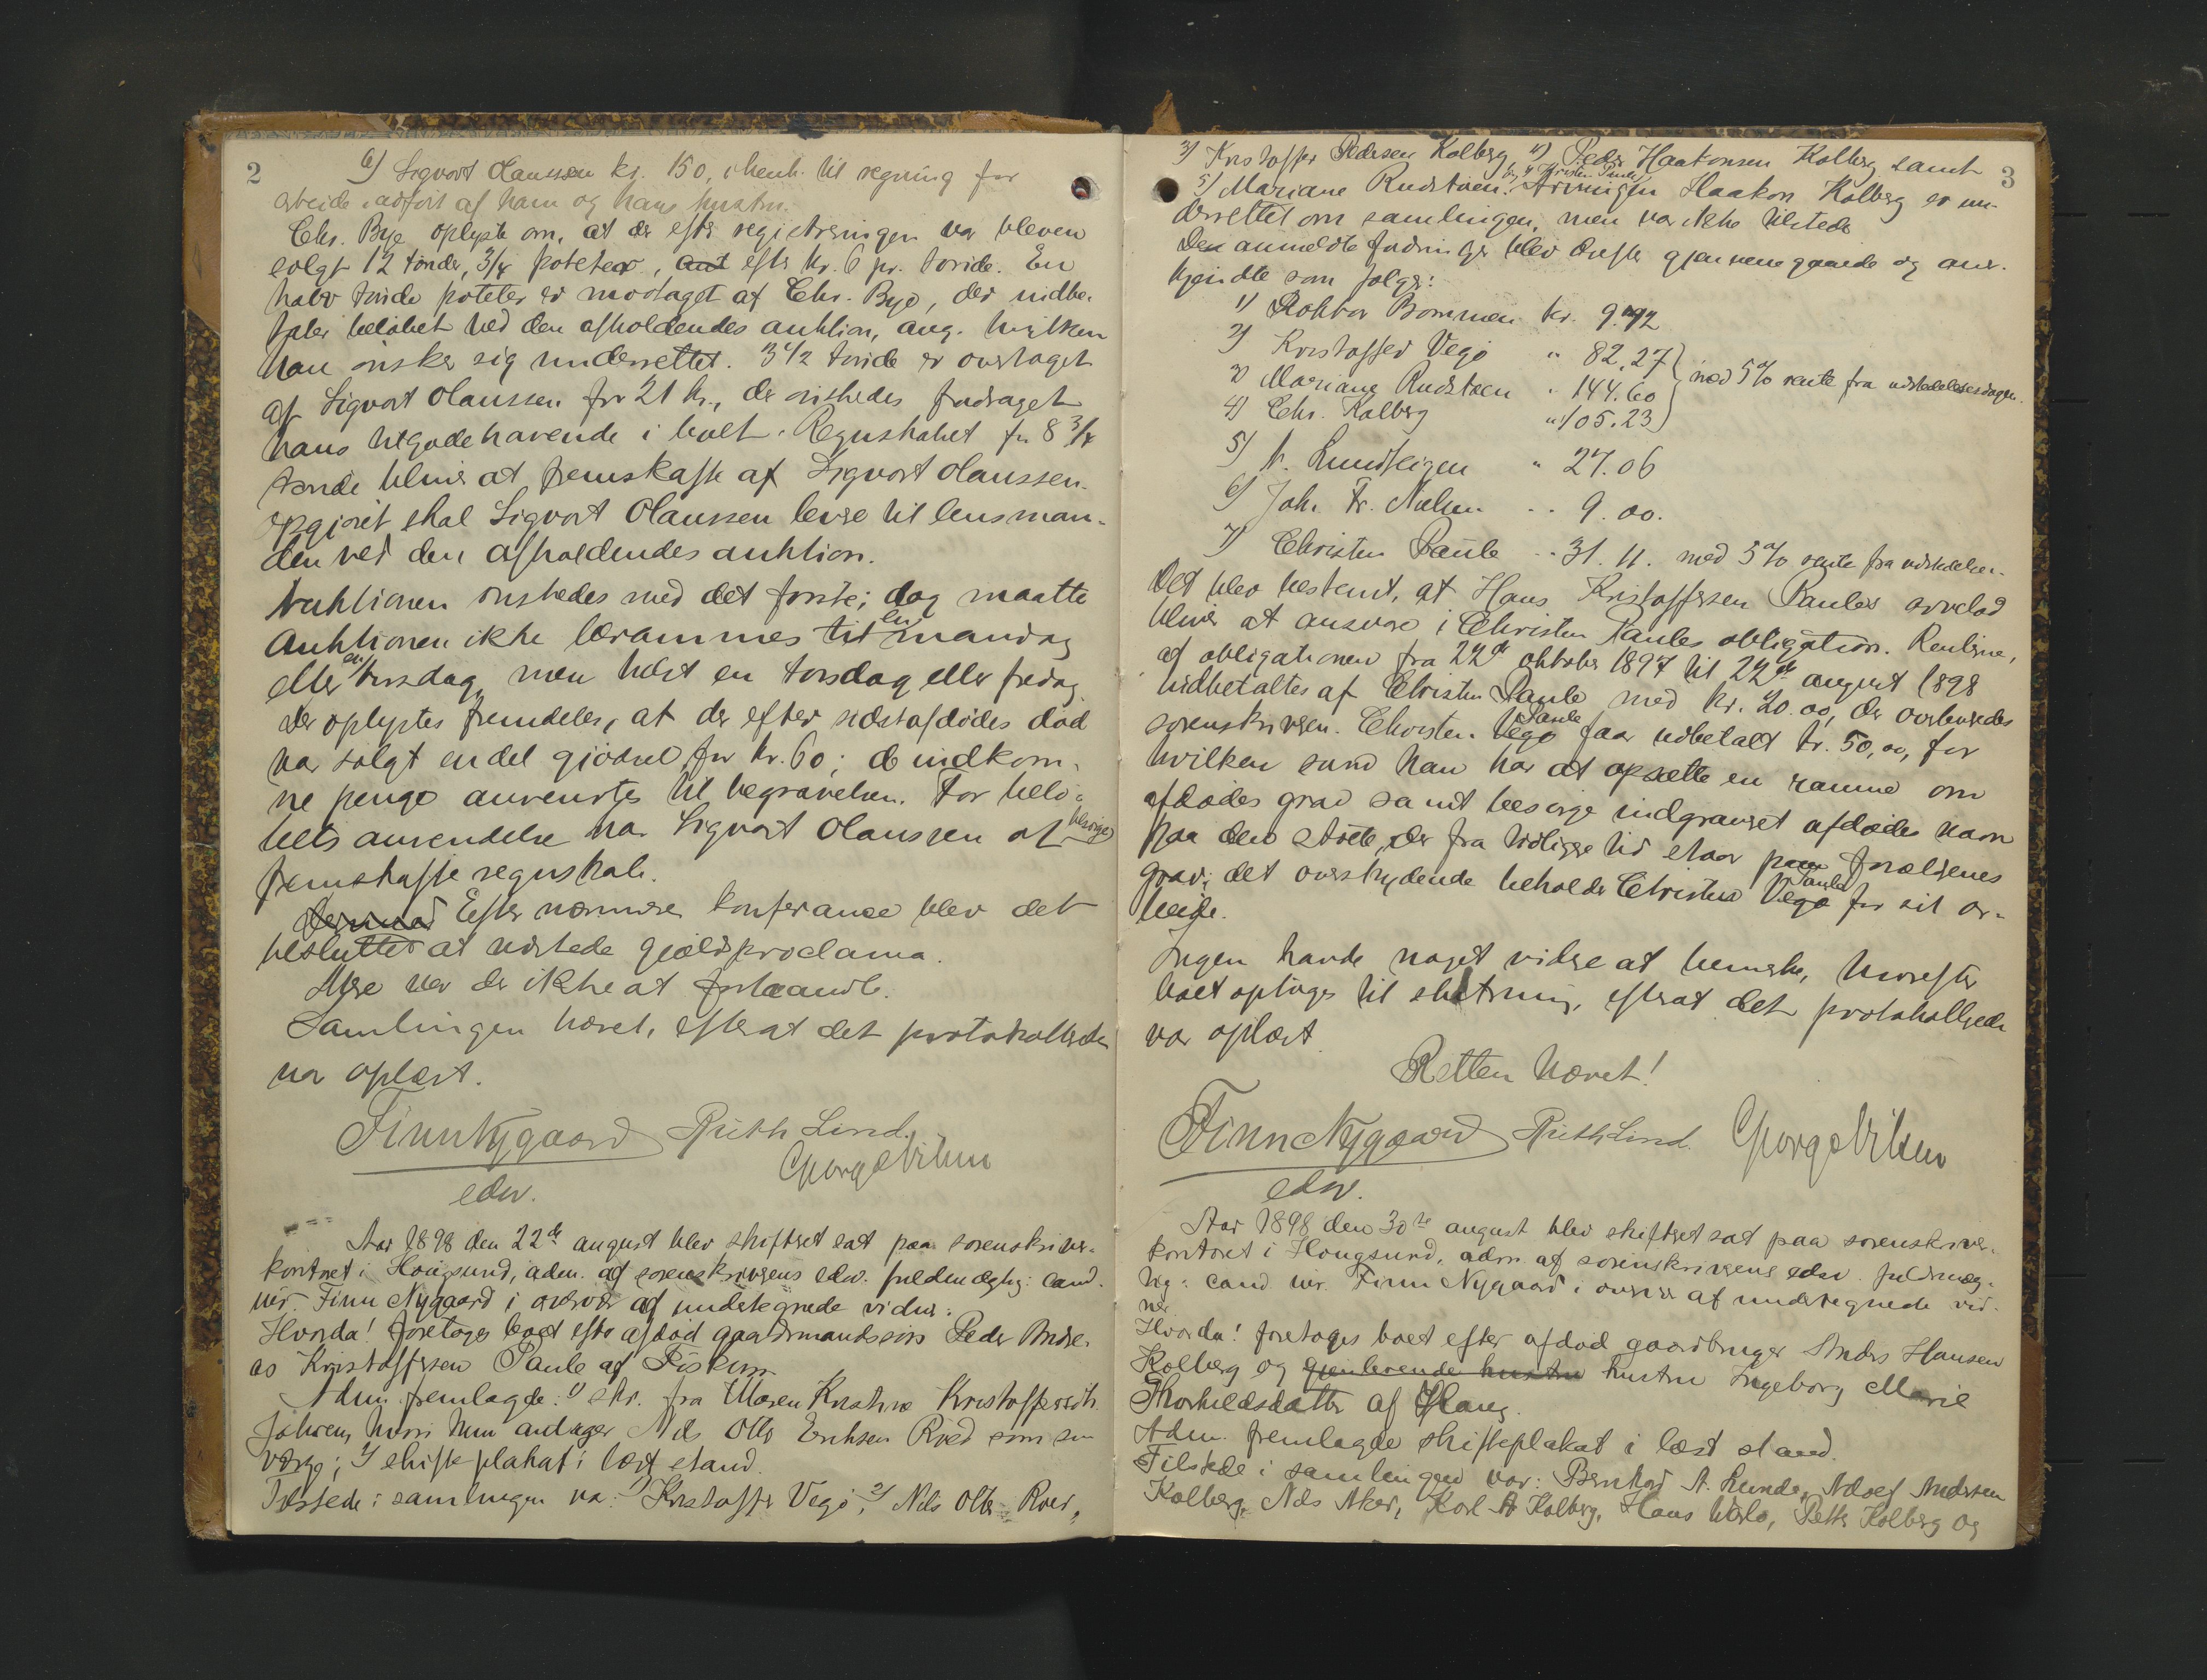 2
6) Sigvart Olaussen kr. 150, i henh. til regning for
arbeide udført af ham og hans hustru.
Chr. Bye oplyste om, at der efter registreringen var bleven
solgt 12 tønder, 3/4 poteter, ant efter kr. 6 pr. tønde. En
halv tønde poteter er modtaget af Chr. Bye, der indbe-
taler beløbet ved den afholdendes auktion, ang. hvilken
han ønsker sig underrettet. 3 1/2 tønde er overtaget
af Sigvart Olaussen for 21 kr., der ønskedes fradraget
hans tilgodehavende i boet. Regnskabet for 8 3/4
tønde bliver at fremskaffe af Sigvart Olaussen.
Opgjøret skal Sigvart Olaussen levere til lensman-
den ved den afholdendes auktion.
Auktionen ønskedes med det første; dog maatte
Auktionen ikke berammes til en mandag
eller en tirsdag, men helst en torsdag eller fredag.
Der oplystes fremdeles, at der efter sidstafdødes død
var solgt endel gjødsel for kr. 60; de indkom-
ne penge anvendtes til begravelsen. For belø-
bets anvendelse har Sigvart Olaussen at
fremskaffe regnskab.
Dermed Efter nærmere konferance blev det
besluttet at udstede gjældsproclama.
Mere var der ikke at forhandle.
Samlingen hævet, efterat det protokollerede
var oplæst.
Finn Nygaard Ruth Lind.
Georg Nilsen
edsv.
Aar 1898 den 22de august blev skifteret sat paa sorenskriver-
kontoret i Hougsund, adm. af sorenskriverens edsv. fuldmægtig: cand.
jur. Finn Nygaard i overvær af undertegnede vidner:
Hvorda! foretoges boet efter afdød gaardmandssøn Peder Andre-
as Kristoffersen Paule af Fiskum.
Adm. fremlagde: 1) skr. fra Maren Kristine Kristoffersdtr.
Johrens, hvori hun antager Nils Otto Eriksen Røed som sin
verge; 2) skifteplakat i læst stand.
Tilstede i samlingen var: 1) Kristoffer Vego, 2) Nils Otto Røed,
3
3) Kristoffer Pedersen Kolberg, 4) Peder Haakonsen Kolberg samt
5) Mariane Rudstøen. og 6) Christen Paule Arvingen Haakon Kolberg er un-
derrettet om samlingen, men var ikke tilstede
De anmeldte fordringer blev derefter gjennemgaaede og aner-
kjendte som følger:
1) Doktor Bommen kr. 9.92
2) Kristoffer Vego " 82,27
3) Mariane Rudstøen " 144.60 med 5% rente fra udstedelsesdagen.
4) Chr. Kolberg " 105.23
5) A. Lundteigen " 27.06
6) Joh. Fr. Nielsen " 9.00.
7) Christen Paule " 31.11. med 5% rente fra udstedelsen.
Det blev bestemt, at Hans Kristoffersen Paules arvelod
bliver at ansvare i Christen Paules obligation. Renterne,
af obligationen fra 22de oktober 1897 til 22de august 1898
indbetaltes af Christen Paule med kr. 20.00, der overleveredes
sorenskriveren. Christen Vego Paule faar udbetalt kr. 50,00, for
hvilken sum han har at opsætte en ramme om
afdødes grav samt besørge indgraveret afdødes navn
paa den støtte, der fra tidligere tid staar paa forældrenes
grav; det overskydende beholder Christen Vego Paule for sit ar-
beide.
Ingen havde noget videre at bemerke, hvorefter
boet optoges til slutning, efterat det protokollerede
var oplæst.
Retten hævet!
Finn Nygaard Ruth Lind. Georg Nilsen
edsv.
Aar 1898 den 30te august blev skifteret sat paa sorenskriver-
kontoret i Hougsund, adm. af sorenskriverens edsv. fuldmæg-
tig: cand. jur. Finn Nygaard i overvær af undertegnede vid-
ner.
Hvorda! foretoges boet efter afdød gaardbruger Anders Hansen
Kolberg og gjenlevende hustru hustru Ingeborg Marie
Thorkildsdatter af Haug.
Adm. fremlagde skifteplakat i læst stand.
Tilstede i samlingen var: Bernhard A. Lunde, Adolf Andersen
Kolberg, Nils Aker, Karl A Kolberg, Hans, Petter Kolberg og